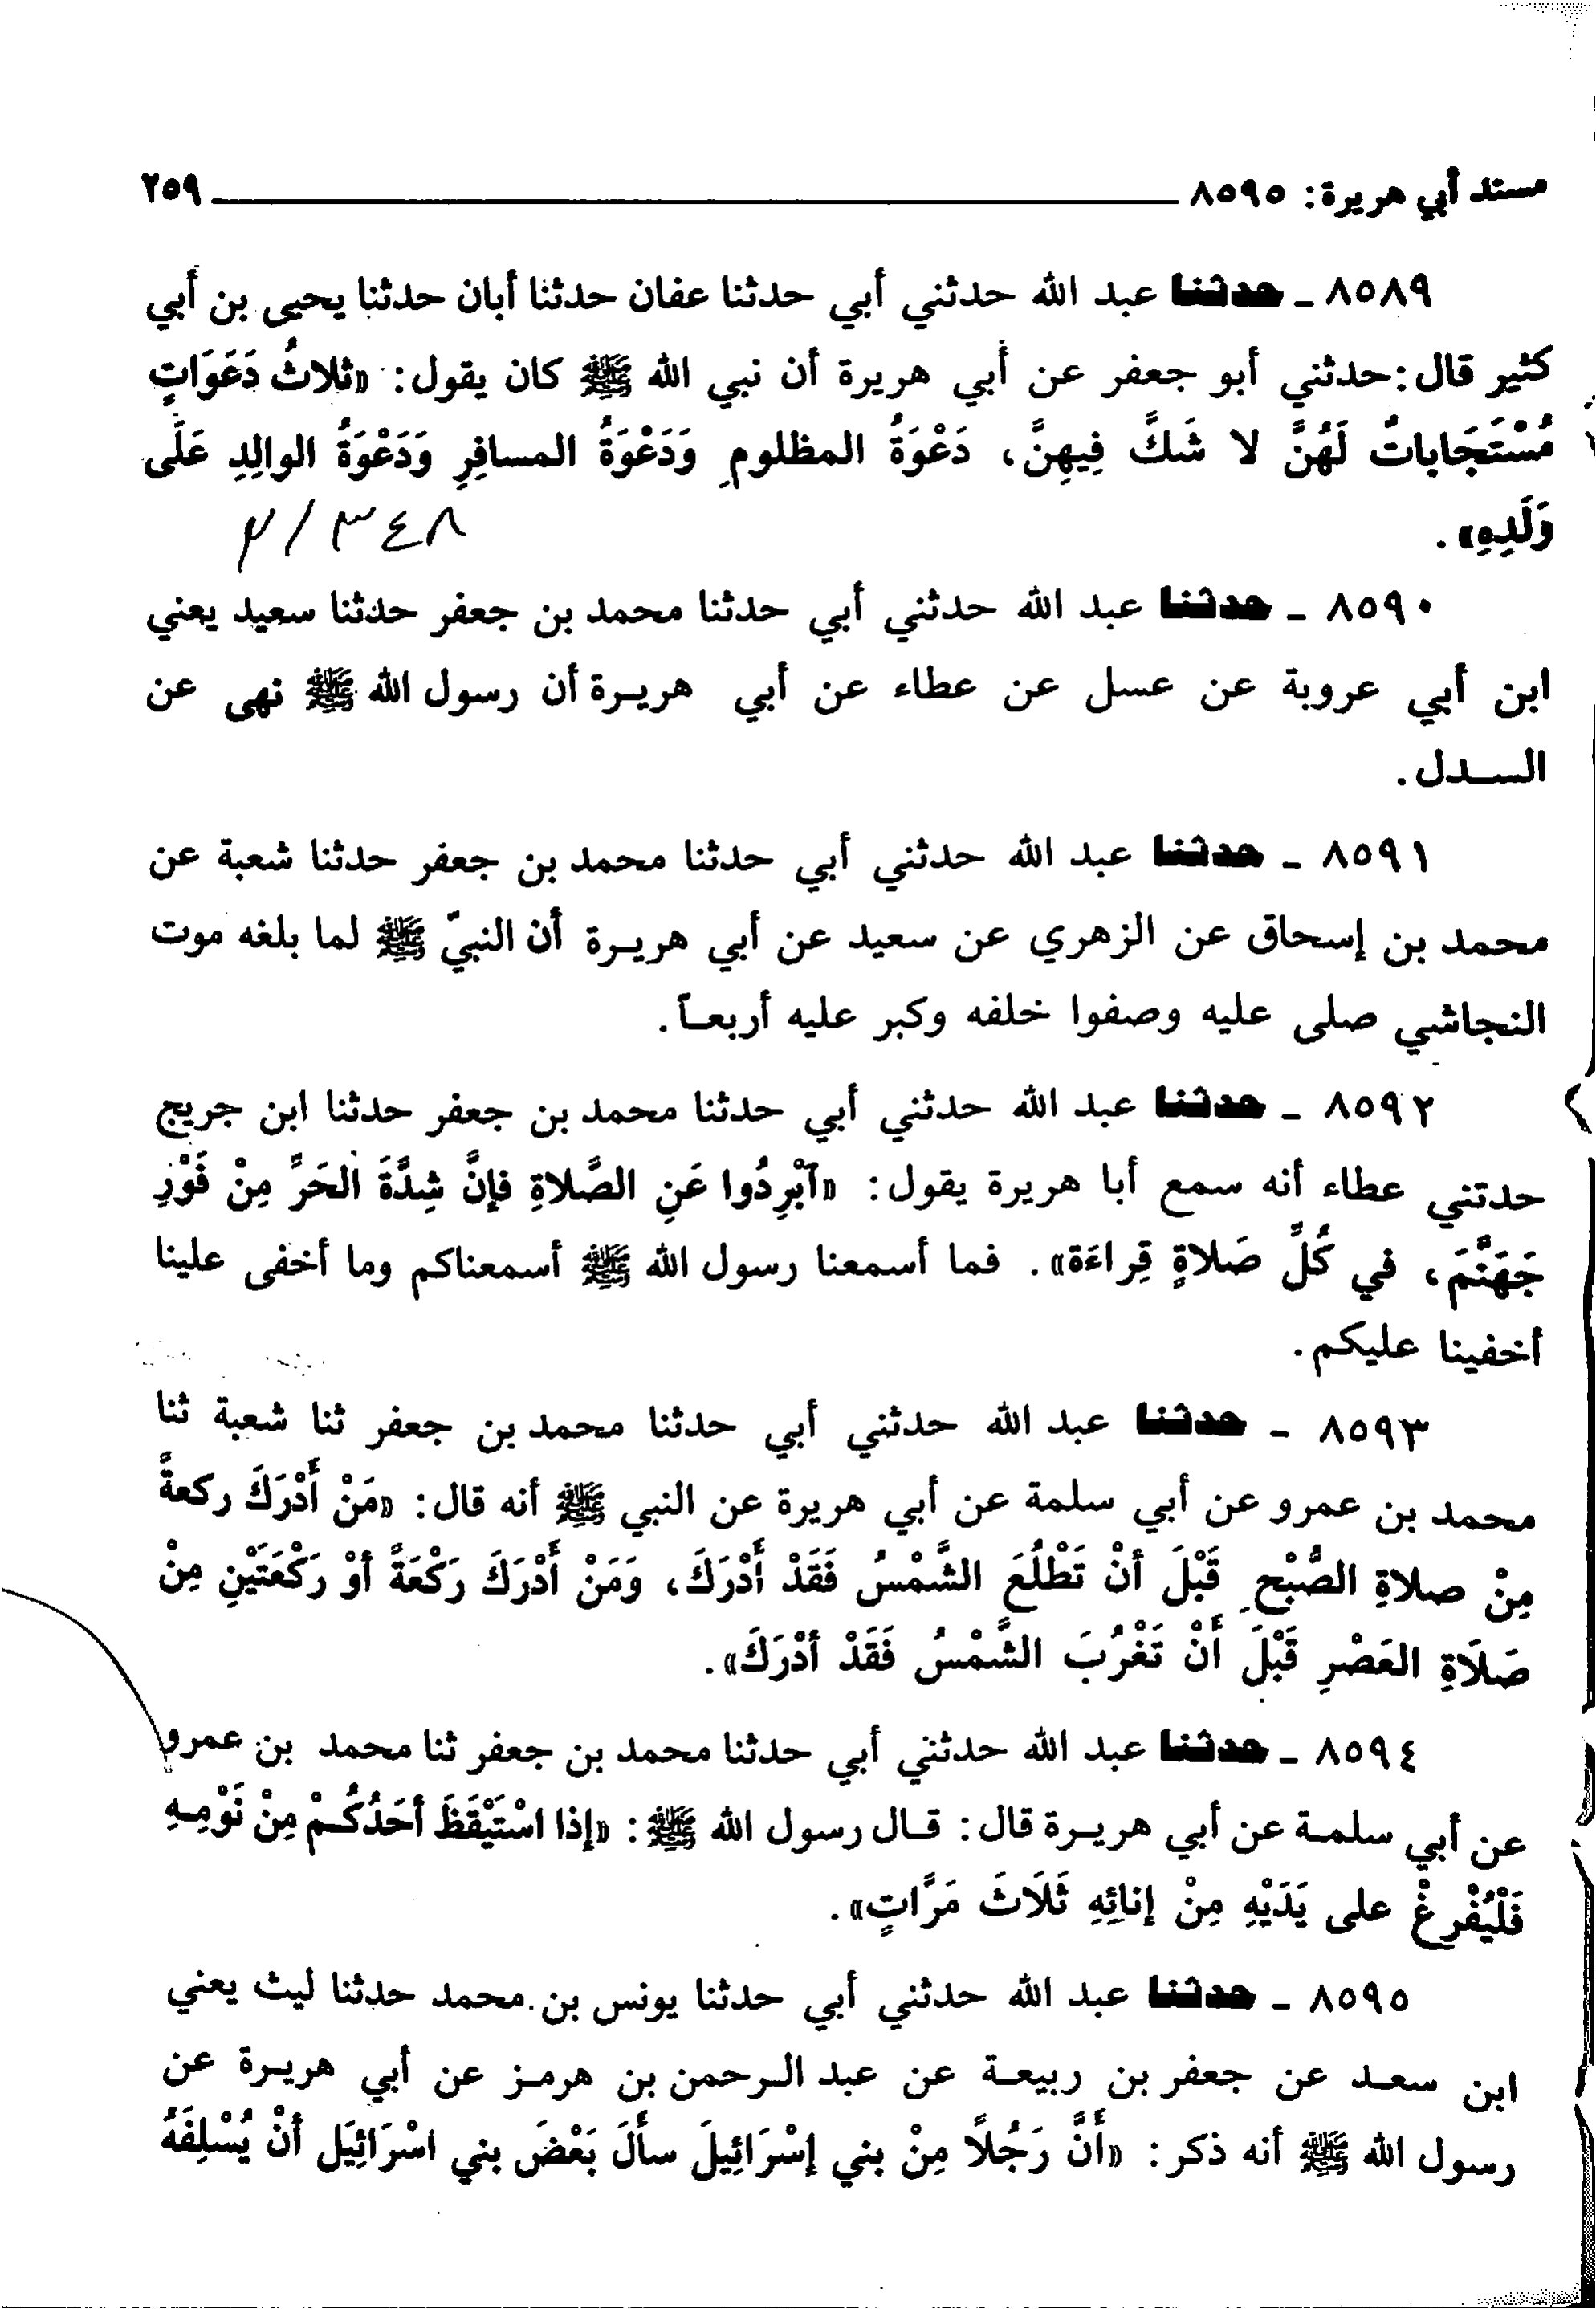 مسند أبي هريرة: ٨٥٩٥ ٢٥٩
٨٥٨٩ - حدثنا عبد الله حدثني أبي حدثنا عفان حدثنا أبان حدثنا يحيى بن أبي
كثير قال: حدثني أبو جعفر عن أبي هريرة أن نبي الله ﷺ كان يقول: «ثلاثُ دَعَوَاتٍ
مُسْتَجَاباتٌ لَهُنَّ لا شَكَّ فِيهِنَّ، دَعْوَةُ المظلومِ وَدَعْوَةُ المسافِرِ وَدَعْوَةُ الوالِدِ عَلَى
وَلَدِهِ».
٢/٣٤٨
٨٥٩٠ - حدثنا عبد الله حدثني أبي حدثنا محمد بن جعفر حدثنا سعيد يعني
ابن أبي عروبة عن عسل عن عطاء عن أبي هريرة أن رسول الله ﷺ نهى عن
السدل.
٨٥٩١ - حدثنا عبد الله حدثني أبي حدثنا محمد بن جعفر حدثنا شعبة عن
محمد بن إسحاق عن الزهري عن سعيد عن أبي هريرة أن النبيّ ﷺ لما بلغه موت
النجاشي صلى عليه وصفوا خلفه وكبر عليه أربعاً.
٨٥٩٢ - حدثنا عبد الله حدثني أبي حدثنا محمد بن جعفر حدثنا ابن جريج
حدتني عطاء أنه سمع أبا هريرة يقول: «آبْرِدُوا عَنِ الصَّلاةِ فإنَّ شِدَّةَ الحَرِّ مِنْ فَوْرِ
جَهَنَّمَ، في كُلِّ صَلاةٍ قِراءَة». فما أسمعنا رسول الله ﷺ أسمعناكم وما أخفى علينا
أخفينا عليكم.
٨٥٩٣ - حدثنا عبد الله حدثني أبي حدثنا محمد بن جعفر ثنا شعبة ثنا
محمد بن عمرو عن أبي سلمة عن أبي هريرة عن النبي ﷺ أنه قال: «مَنْ أَدْرَكَ ركعةً
مِنْ صلاةِ الصُّبْحِ قَبْلَ أنْ تَطْلُعَ الشَّمْسُ فَقَدْ أَدْرَكَ، وَمَنْ أَدْرَكَ رَكْعَةً أوْ رَكْعَتَيْنِ مِنْ
صَلَاةِ العَصْرِ قَبْلَ أَنْ تَغْرُبَ الشَّمْسُ فَقَدْ أدْرَكَ».
٨٥٩٤ - حدثنا عبد الله حدثني أبي حدثنا محمد بن جعفر ثنا محمد بن عمرو
عن أبي سلمة عن أبي هريرة قال: قال رسول الله ﷺ: «إذا اسْتَيْقَظَ أحَدُكُمْ مِنْ نَوْمِهِ
فَلْيُفْرِغْ على يَدَيْهِ مِنْ إنائِهِ ثَلَاثَ مَرَّاتٍ».
٨٥٩٥ - حدثنا عبد الله حدثني أبي حدثنا يونس بن محمد حدثنا ليث يعني
ابن سعد عن جعفر بن ربيعة عن عبد الرحمن بن هرمز عن أبي هريرة عن
رسول الله ﷺ أنه ذكر: «أَنَّ رَجُلاً مِنْ بني إسْرَائِيلَ سألَ بَعْضَ بني اسْرَائِيَل أنْ يُسْلِفَهُ